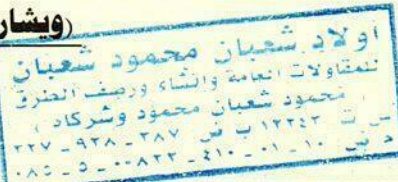 (ويشار
اولاد شعبان محمود شعبان
للمقاولات العامة وانشاء ورصف الطرق
محمود شعبان محمود وشركاه
س ت ١٢٢٤٢ ب ض ٢٨٧ - ٩٢٨ - ٢٢٧